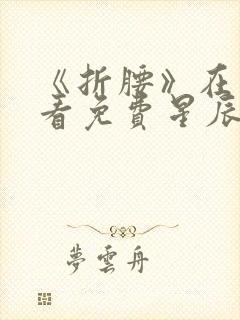 《折腰》在
看免費星辰
夢雲舟